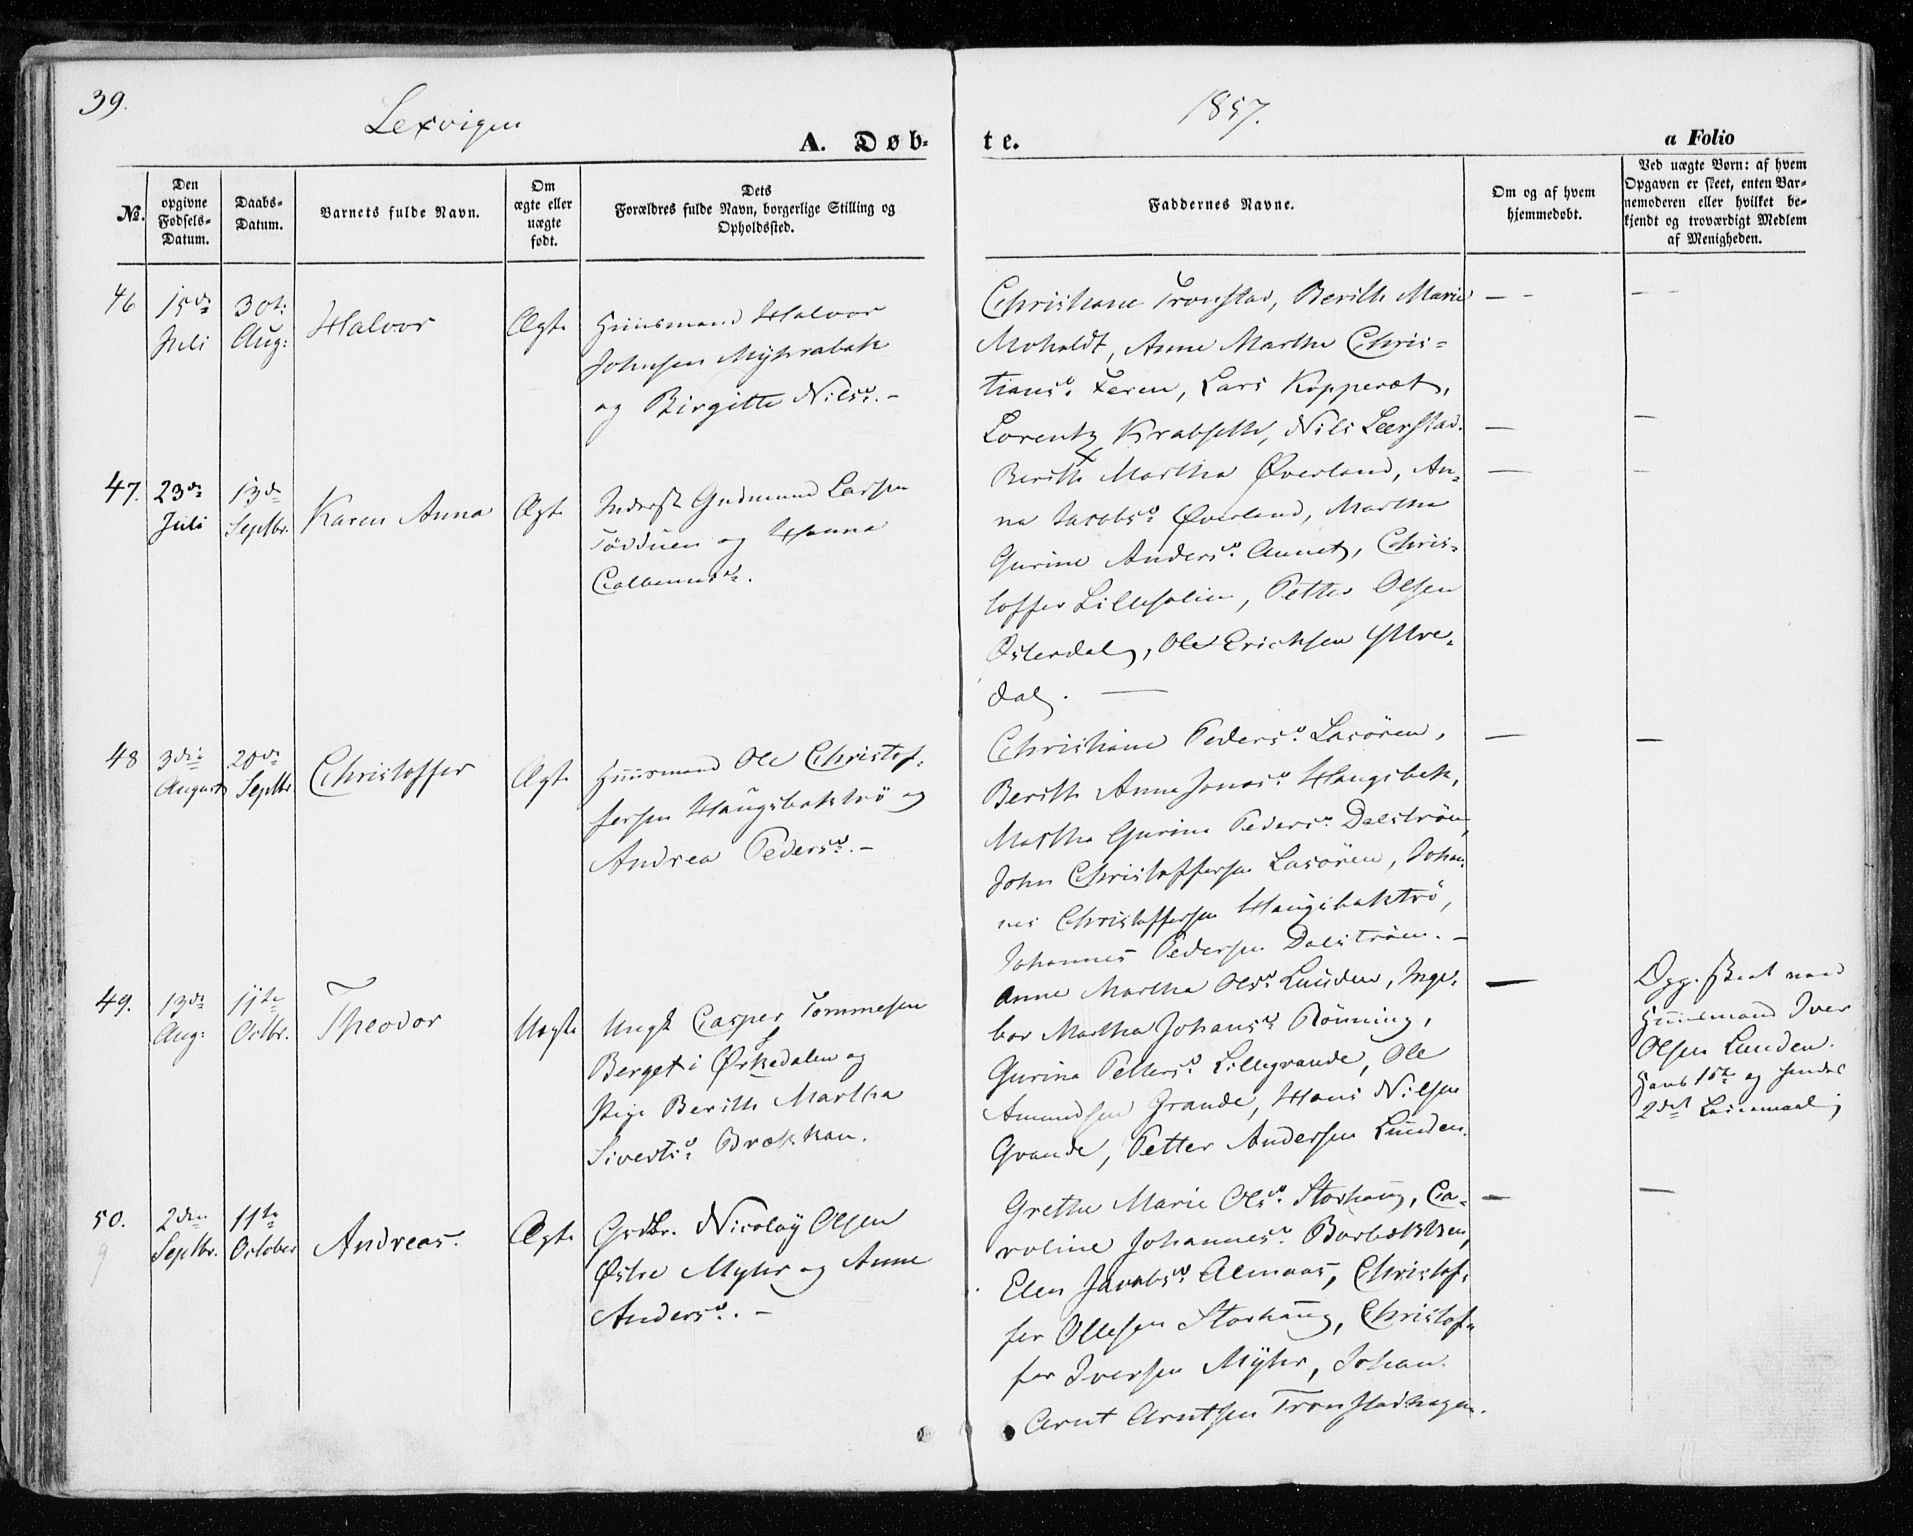 39.
Lexvigen
1857.
A. Døb-
te.
a Folio
No.
Den opgivne Fødsels-Datum.
Daabs-Datum.
Barnets fulde Navn.
Om ægte eller uægte født.
Dets Forældres fulde Navn, borgerlige Stilling og Opholdssted.
Faddernes Navne.
Om og af hvem hjemmedøbt.
Ved uægte Børn: af hvem Opgaven er skeet, enten Barnemoderen eller hvilket bekjendt og troværdigt Medlem af Menigheden.
46
15de Juli
30te Aug:
Halvor
Ægte
Huusmand Halvor
Johnsen Myhrabak
og Birgitte Nilsd. -
Christiane Tronstad, Berith Marie
Moholdt, Anne Martha Chris-
tiansd. Feren, Lars Kopperæt,
Lorentz Krabseth, Nils Leerstad.
47.
23de Juli
13de Septbr.
Karen Anna
Ægte
Inderst Gudmund Larsen
og Hanna
Berith Martha Øverland, An-
na Jacobsd. Øverland, Martha
Gurine Andersd. Aunet, Chris-
toffer Lillesolien, Petter Olsen
Østerdal, Ole Erichsen Ytre-
dal. —
48
3die August
20de Septbr.
Christoffer
Ægte
Huusmand Ole Christof-
fersen Haugsbaktrø og
Andrea Pedersd. -
Christiane Pedersd. Lasøren,
Berith Anna Jonasd. Haugsbak,
Martha Gurine Pedersd. Dalstrøm,
John Christoffersen Lasøren, Johan-
nes Christoffersen Haugsbaktrø,
Johannes Pedersen Dalstrøm. -
49.
13de Aug:
11te Octbr.
Theodor
Uægte
Ungk. Casper Tommesen
Berget i Ørkedalen og
Pige Berith Martha
Sivertsd. Brækkan.
Anne Martha Olsd. Lunden, Inge-
bor Martha Johansd. Rønning,
Gurina Pettersd. Lillegrande, Ole
Amundsen Grande, Hans Nilsen
Grande, Petter Andersen Lunden.
Opg. skeet ved
Huusmand Iver
Olsen Lunden.
Hans 1ste og hendes
2det Leiermaal;
50.
9
2den Septbr.
11te October
Andreas.
Ægte
Grdbr. Nicolay Olsen
Østre Myhr og Anne
Andersd. -
Grethe Marie Olsd. Storhaug, Ca-
roline Johannesd.
Elen Jacobsd. Almaas, Christof-
fer Ollesen Storhaug, Christof-
fer Iversen Myhr, Johan
Arnt Arntsen Tronstadhagen.